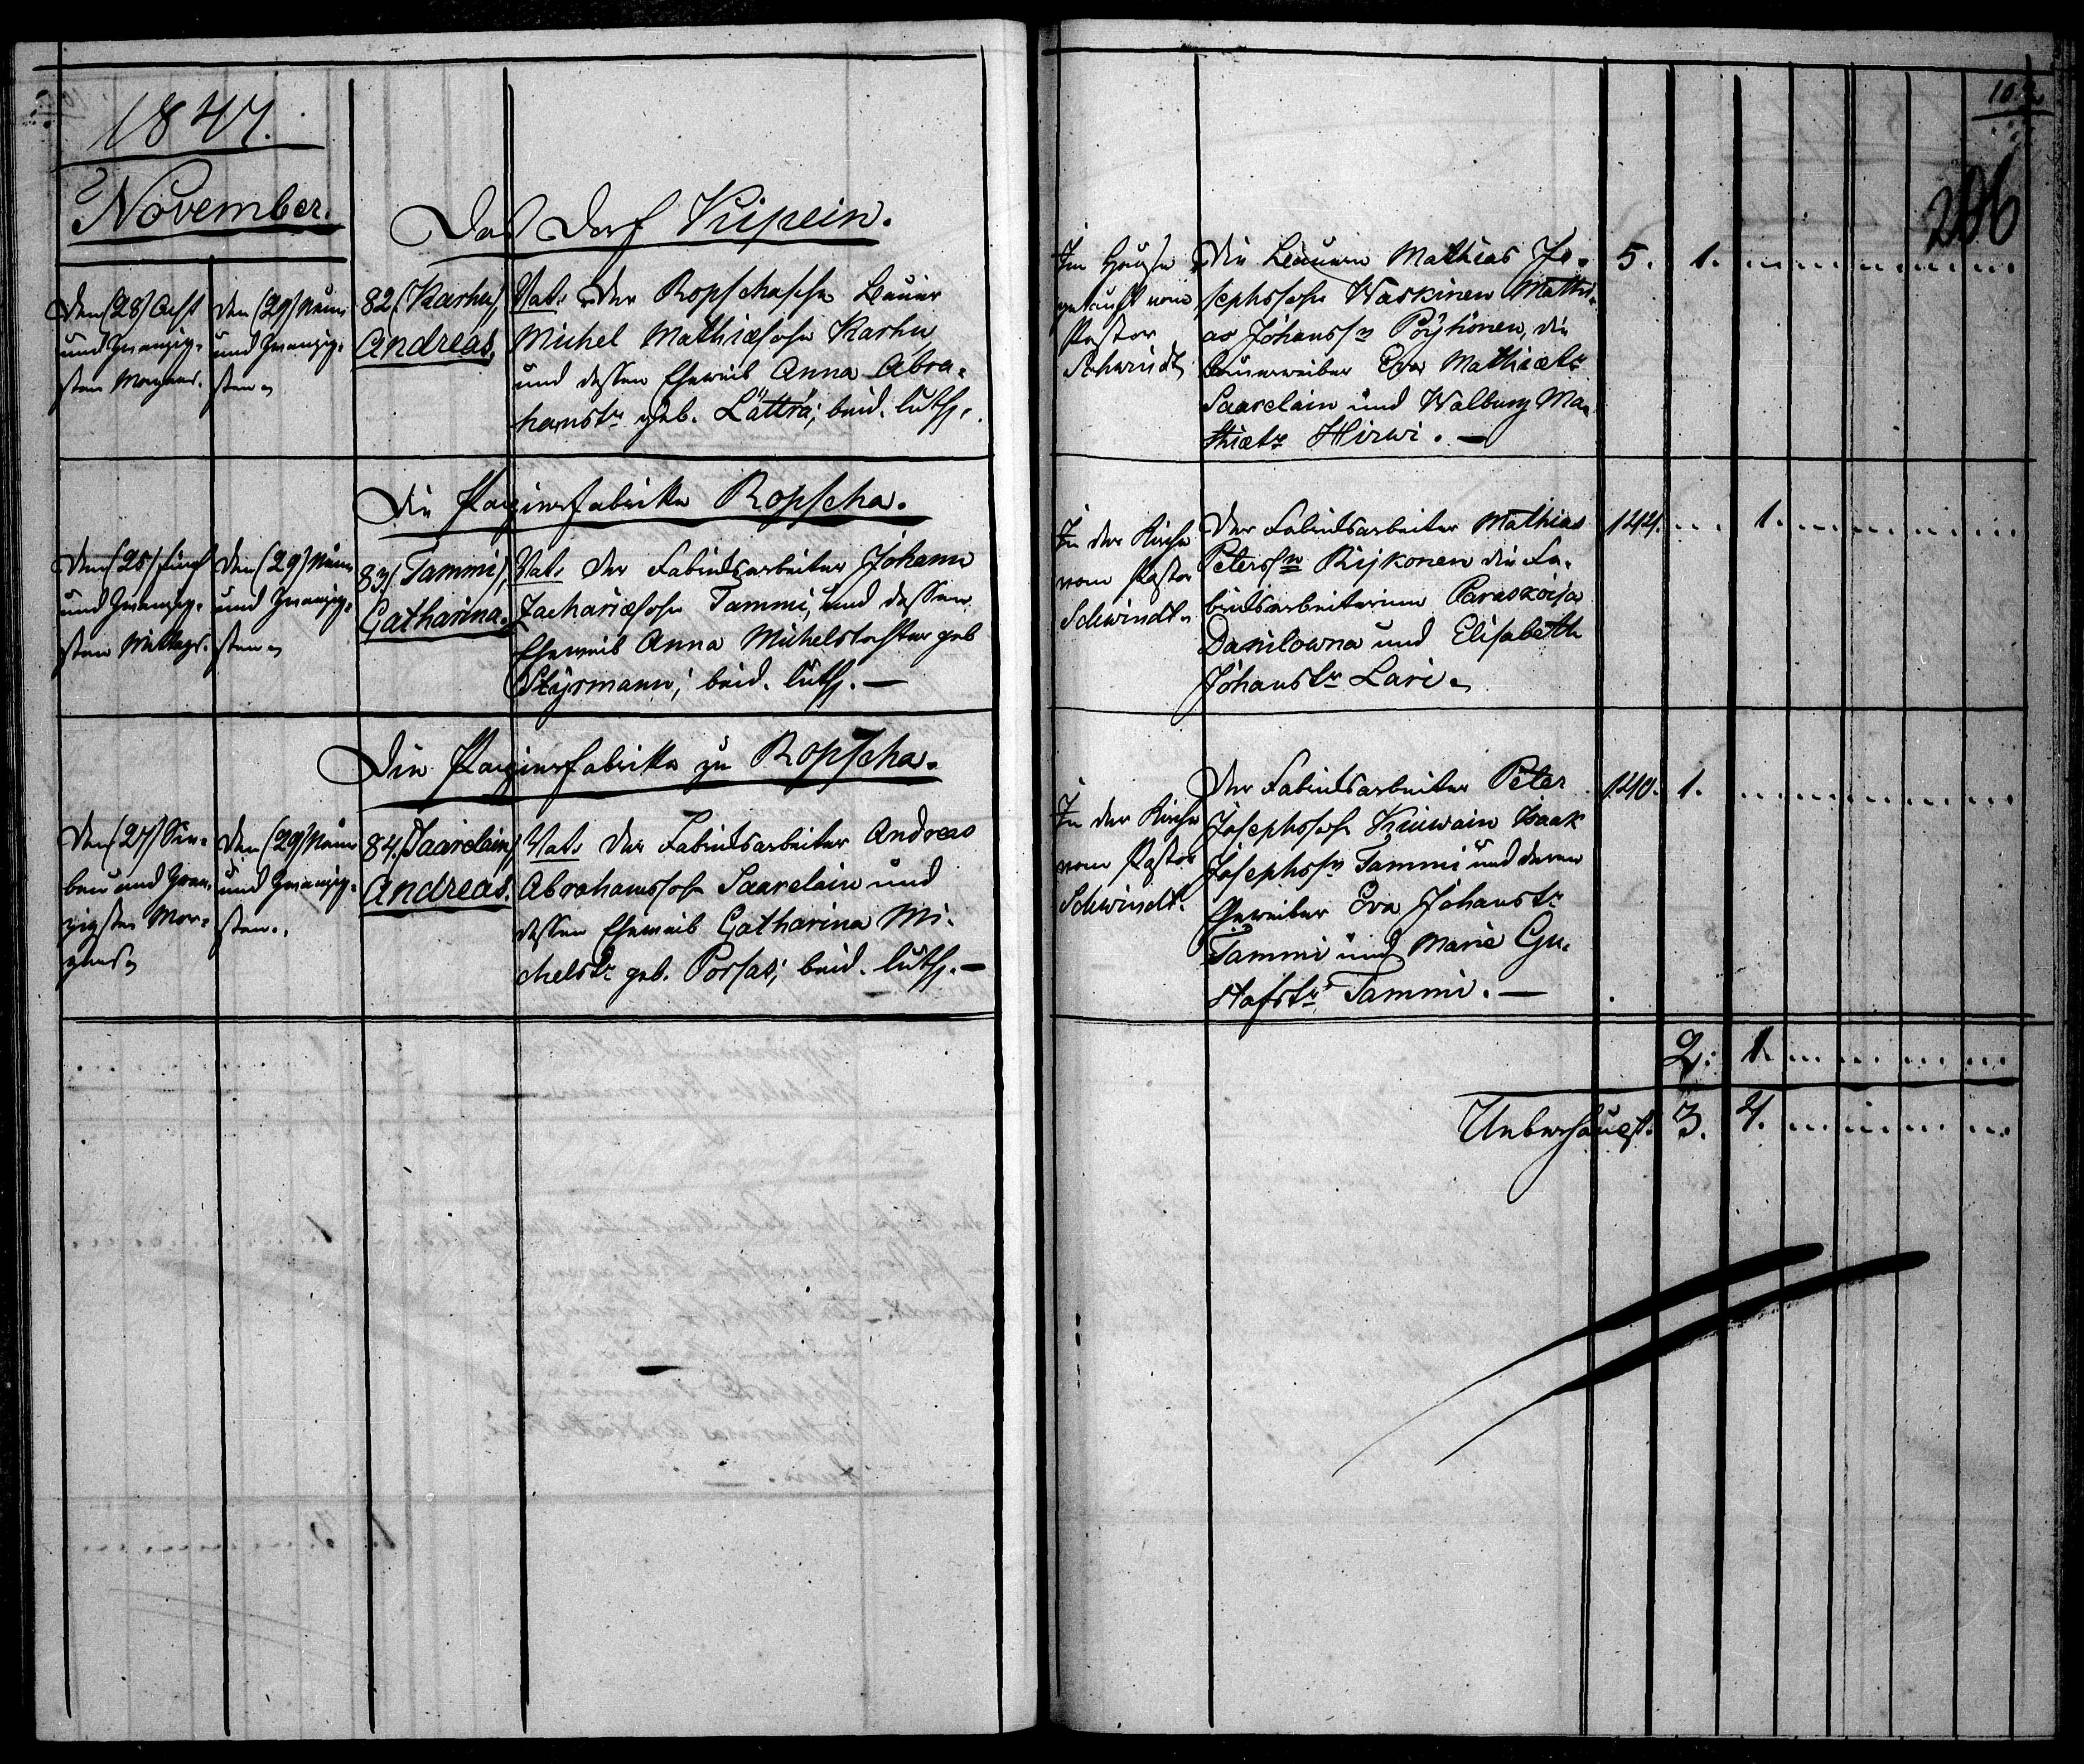 1847.
November.
Das Dorf Kipein.
den (28) Acht
und zwanzig-
sten Morgens.
den (29) Neun
und zwanzig-
sten.
82. (Karhu)
Andreas.
Vat. Der Ropschasche Bauer
Michel Mathiaesohn Karhu,
und dessen Eheweib Anna Abra-
hamstr. geb. Lätträ; beid. luth.
Im Hause
getauft vom
Pastor
Schwindt
Die Bauern Mathias Jo-
sephssohn Waskinen Mathi-
as Johanssn Pöyhönen, die
Bauerweiber Eva Mathiaetr
Saarelain und Walburg Ma-
thiaetr Hirwi. —
5. 1.
102
206
Die Papierfabrike Ropscha.
den (25) fünf
und zwanzig-
sten Mittags.
den (29) Neun
und zwanzig-
sten.
83. (Tammi)
Catharina.
Vat. Der Fabriksarbeiter Johann
Zachariaesohn Tammi, und dessen
Eheweib Anna Michelstochter geb
Styrmann; beid. luth. —
In der Kirche
vom Pastor
Schwindt.
Der Fabriksarbeiter Mathias
Peterssn Rijkonen die Fa-
briksarbeiterinn Paraskoija
Danilowna und Elisabeth
Johanstr Lari.
124. 1.
Die Papierfabrike zu Ropscha.
den (27) Sie-
ben und zwan-
zigsten Mor-
gens
den (29) Neun
und zwanzig-
sten.
84. (Saarelain)
Andreas.
Vat. Der Fabriksarbeiter Andreas
Abrahamssohn Saarelain und
dessen Eheweib Catharina Mi-
chelstr. geb. Porsas; beid. luth. —
In der Kirche
vom Pastor
Schwindt.
Der Fabriksarbeiter Peter
Josephssohn Kiuwain Isaak
Josephssn Tammi und deren
Eheweiber Eva Johanstr
Tammi und Marie Gu-
stafstr Tammi. —
140. 1.
2. 1.
Ueberhaupt. 3. 4.